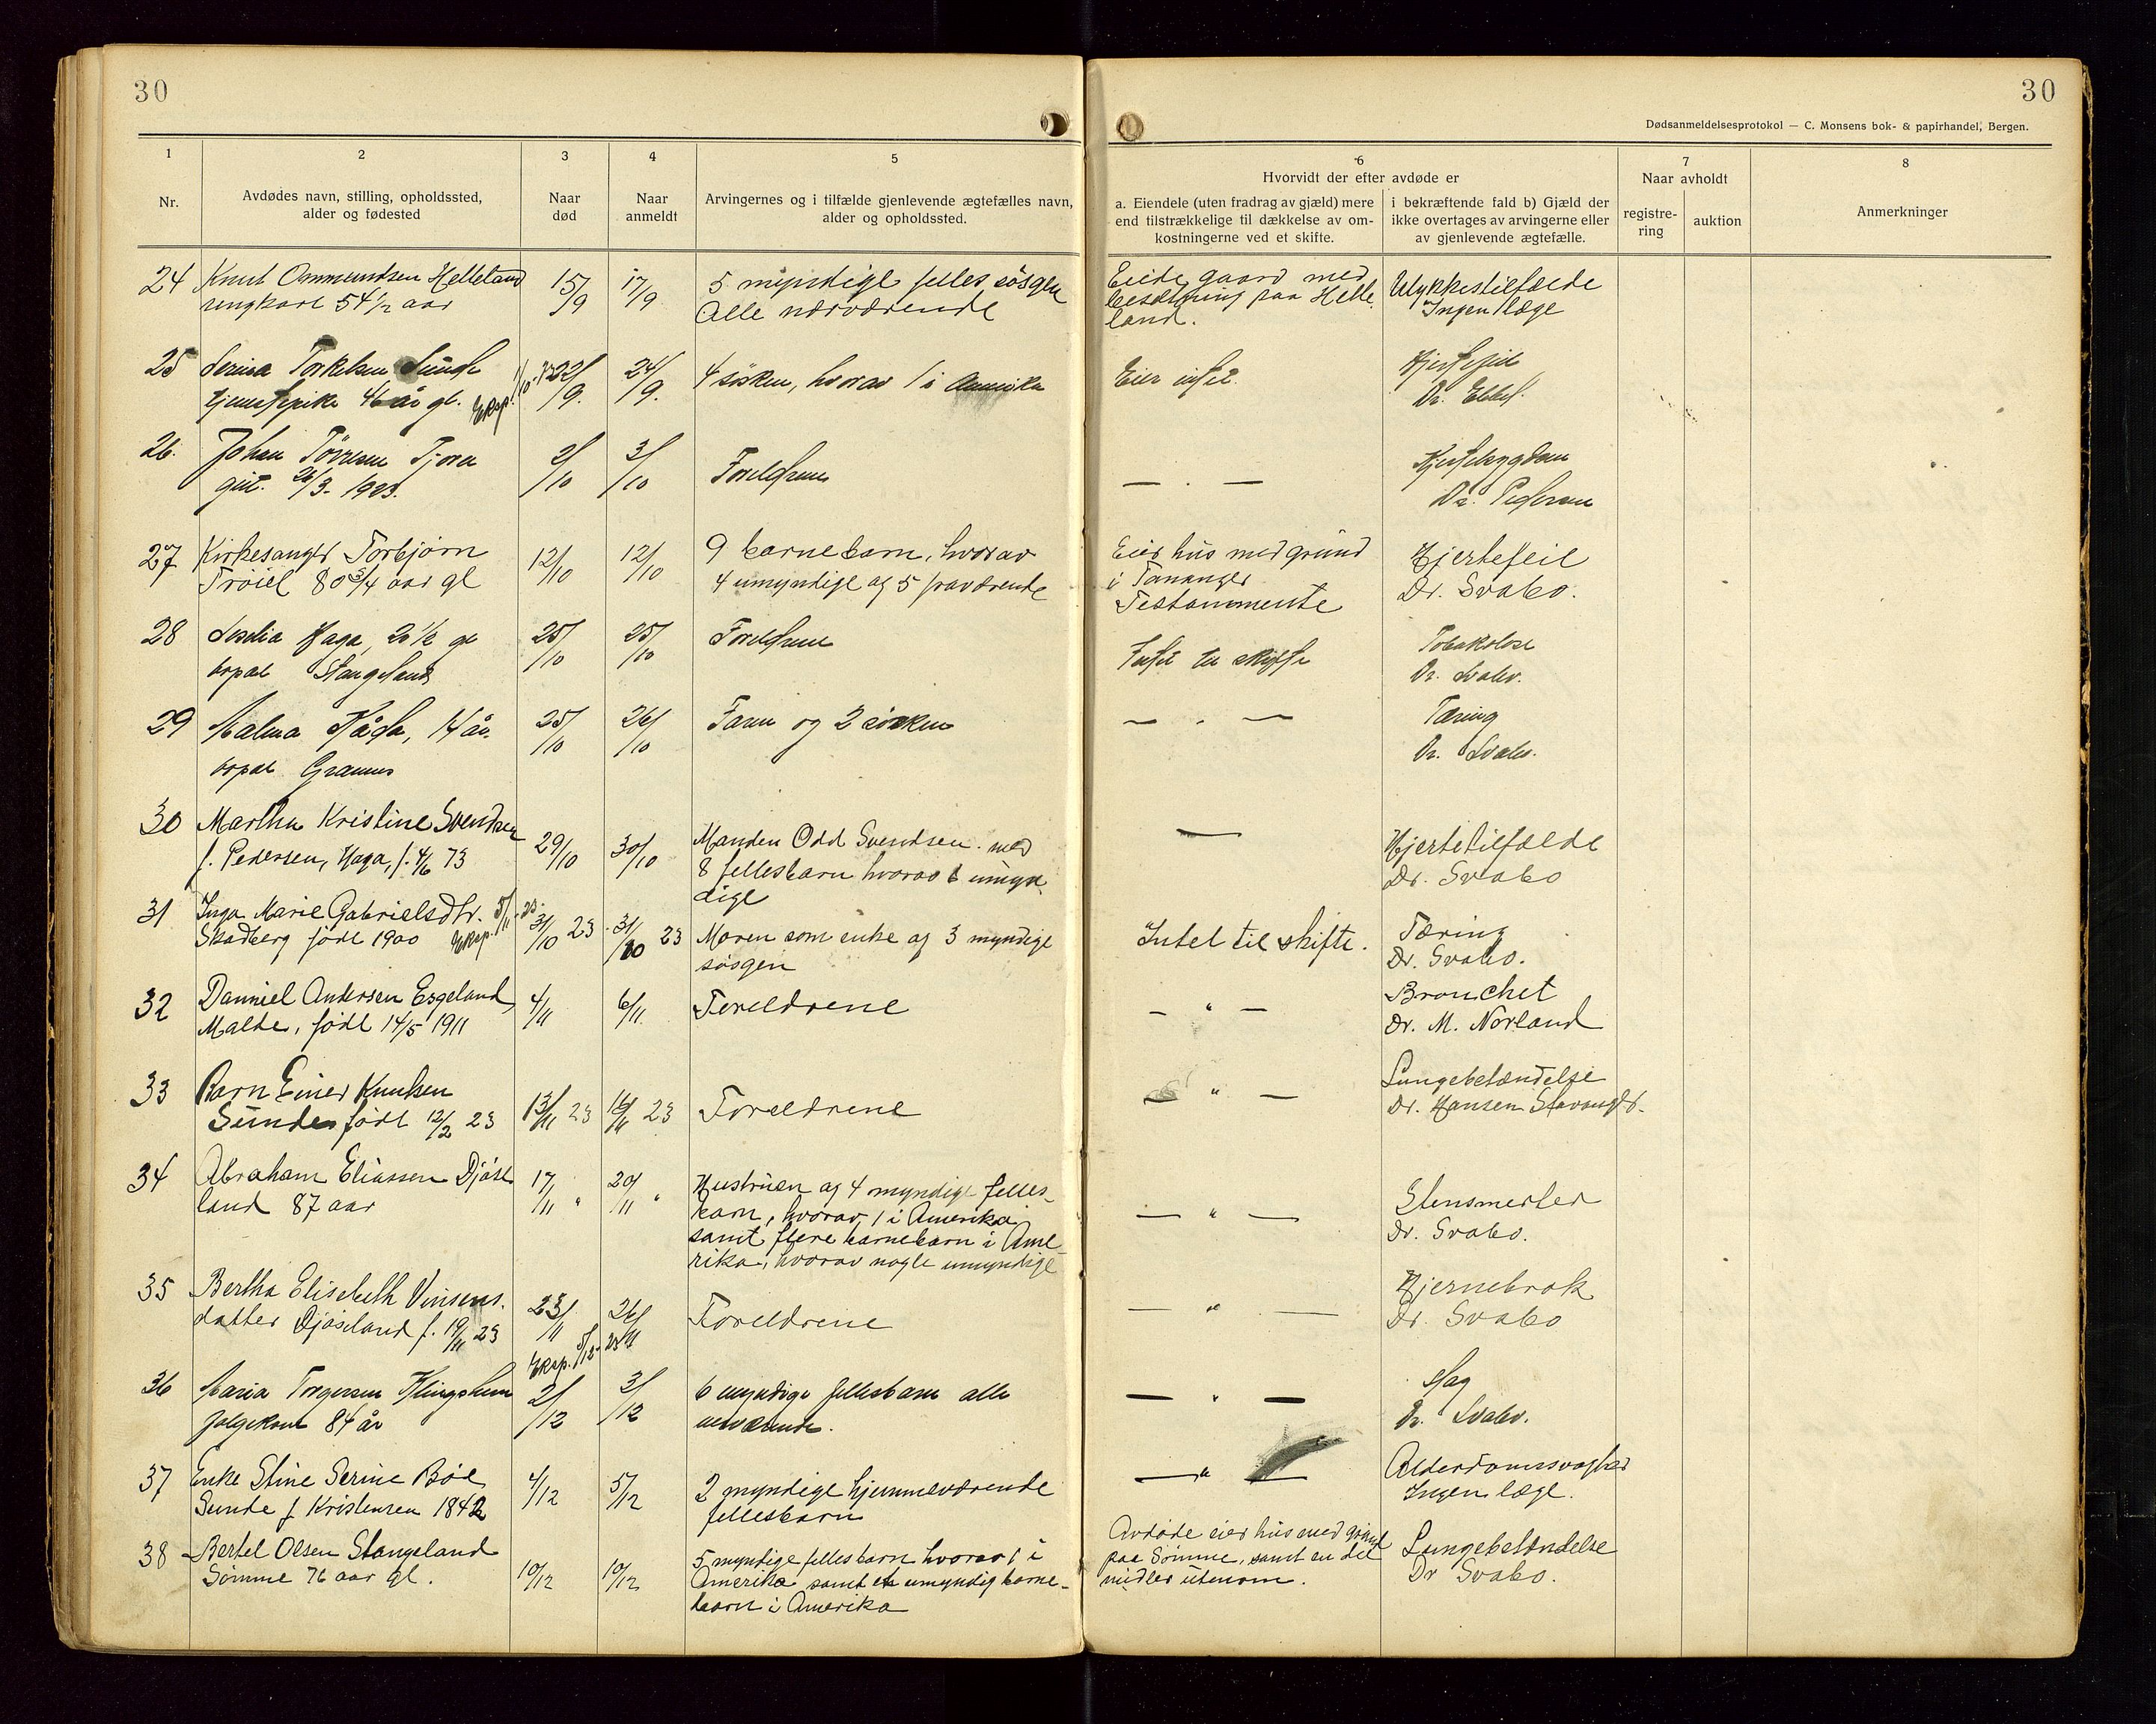 30
30
Dødsanmeldelsesprotokol — C. Monsens bok- & papirhandel, Bergen.
1
Nr.
2
Avdødes navn, stilling, opholdssted,
alder og fødested
3
Naar
død
4
Naar
anmeldt
5
Arvingernes og i tilfælde gjenlevende ægtefælles navn,
alder og opholdssted.
6
Hvorvidt der efter avdøde er
a. Eiendele (uten fradrag av gjæld) mere
end tilstrækkelige til dækkelse av om-
kostningerne ved et skifte.
i bekræftende fald b) Gjæld der
ikke overtages av arvingerne eller
av gjenlevende ægtefælle.
7
Naar avholdt
registre-
ring
auktion
8
Anmerkninger
24 Knut Ommundsen Helleland
ungkarl 54 1/2 aar
15/9
17/9
5 myndige felles søsgen
Alle nærværende
Eiede gaard med
besætning paa Helle
land.
Ulykkestilfælde
Ingen læge
25 Serina Torkelsen Sunde
tjenestepike 46 år gl. Eksp.
22/9.
24/9.
4 søsken, hvorav 1 i Amerika
Eier intet.
Hjertefeil
Dr.
26. Johan Tørresen Tjora
gut. 26/3- 1923.
2/10
3/10
Foreldrene
— . —
Dr. Pedersen
27 Kirkesanger Torbjørn
Trøiel 80 3/4 aar gl
12/10
12/10
9 barnebarn, hvorav
4 umyndige og 5 fraværende
Eier hus med grund
i Tananger
Testammente
Hjertefeil
Dr. Svabo.
28 Haga, 2 1/2 gl
bopæl Stangeland
25/10
25/10
Foreldrene
Intet til skifte
Dr. Svabo.
29 Malma 14 år.
bopæl
25/10
26/10
Faren og 2 søsken
— . —
Tæring
Dr. Svabo.
30 Martha Kristine Svendsen
f. Pedersen, Haga, f. 4/6 73
29/10
30/10
Manden Odd Svendsen. med
8 fellesbarn hvorav 6 umyn
dige
—
Hjertetilfælde
Dr. Svabo
31 Inga Marie Gabrielsdtr.
Skadberg født 1900 Eksp. 5/11-23.
31/10 23
31/10 23
Moren som enke og 3 myndige
søsgen
Intet til skifte.
Tæring
Dr. Svabo.
32 Danniel Andersen Esgeland
Malde, født 14/5 1911
4/11
6/11.
Foreldrene
— " —
Bronchet
Dr. M. Norland
33 Barn Einer Knutsen
Sunde født 12/2 23
13/11 23
16/11 23
Foreldrene
— " —
Lungebetændelse
Dr. Hansen Stavanger.
34 Abraham Eliassen Djøse
land 87 aar
17/11 "
20/11 "
Hustruen og 4 myndige felles-
barn, hvorav 1 i Amerika
samt flere barnebarn i Ame-
rika, hvorav nogle umyndige
— " —
Stensmerter
Dr. Svabo.
35 Bertha Elisebeth Vinsens.
datter Djøseland f. 19/11 23
23/11
26/11
Foreldrene
— " —
Hjernebrok
Dr. Svabo
Eksp. 5/12-23
36 Maria Torgersen Klingsheim
folgekone 84 år
2/12
3/12
6 myndige fellesbarn alle
nærværende.
— " —
Slag
Dr. Svabo.
37 Enke Stine Serine Bøe
Sunde f. Kristensen 1842
4/12
5/12
2 myndige hjemmeværende
fellesbarn
— " —
Alderdomssvaghed
Ingen læge.
38 Bertel Olsen Stangeland
Sømme 76 aar gl.
10/12
10/12
5 myndige fellesbarn hvorav 1 i
Amerika samt et umyndig barne-
barn i Amerika
Avdøde eier hus med grund
paa Sømme, samt en del
midler utenom.
Lungebetændelse
Dr Svabo.